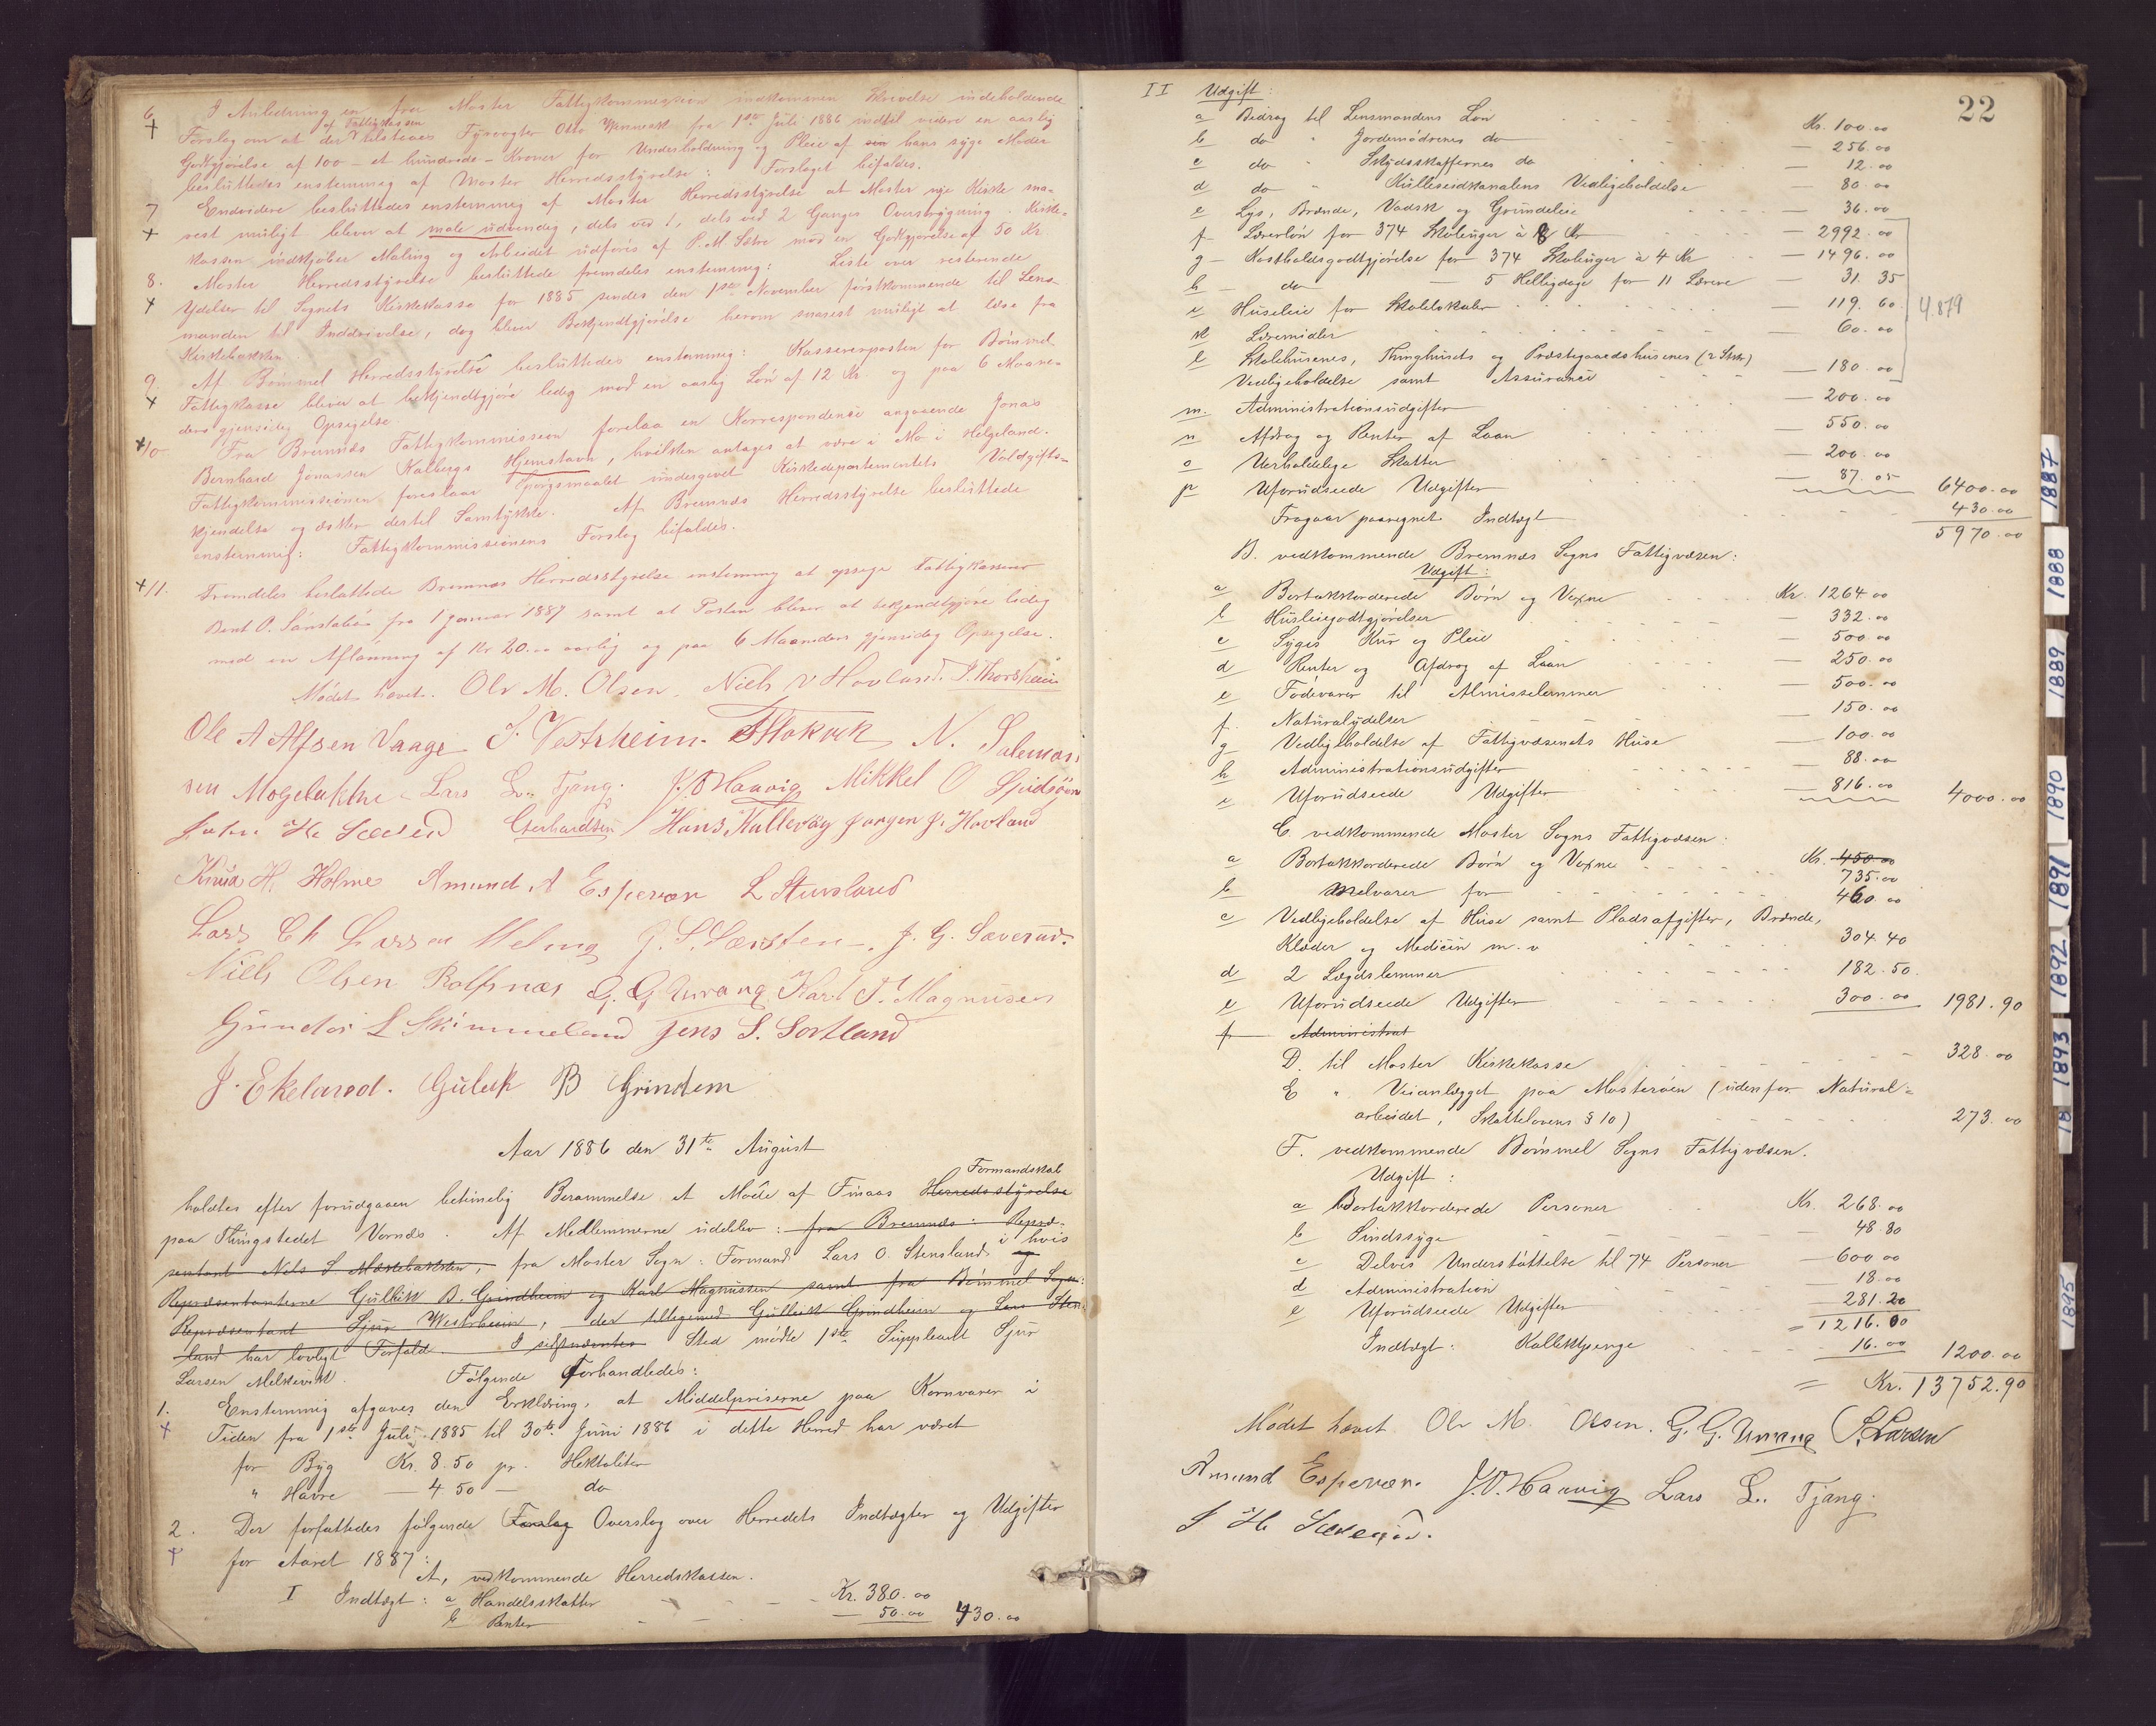 6. I Anledning en fra Moster Fattigkommission indkommen Skrivelse indeholdende
+ Forslag om at der af Fattigkassen tilstaaes Fyrvogter Otto Wenneck fra 1ste Juli 1886 indtil videre en aarlig
Godtgjørelse af 100 - et hundrede - Kroner for Underholdning og Pleie af hans syge Moder
besluttedes enstemmig af Moster Herredsstyrelse: Forslaget bifaldes.
7 Endvidere besluttedes enstemmig af Moster Herredsstyrelse at Moster nye Kirke sna-
+ rest muligt bliver at male udvendig, dels ved 1, dels ved 2 Ganges Overstrygning. Kirke-
kassen indkjøber Maling og Arbeidet udføres af P. M. Sætre mod en Godtgjørelse af 50 Kr.
8. Moster Herredsstyrelse besluttede fremdeles enstemmig: Liste over resterende
+ Ydelser til Sognets Kirkekasse for 1885 sendes den 1ste November førstkommende til Lens-
manden til Inddrivelse, dog bliver Bekjendtgjørelse herom snarest muligt at læse fra
Kirkebakken
9. Af Bømmel Herredsstyrelse besluttedes enstemmig: Kassererposten for Bømmel
+ Fattigkasse bliver at bekjendtgjøre ledig mod en aarlig Løn af 12 Kr. og paa 6 Maane-
ders gjensidig Opsigelse
+10 Fra Bremnes Fattigkommission forelaa en Korrespondence angaaende Jonas
Bernhard Jonassen Kalbergs Hjemstavn, hvilken antages at være i Mo i Helgeland.
Fattigkommissionen foreslaar Spørgsmaalet undergivet Kirkedepartementets Voldgifts-
kjendelse og æsker dertil Samtykke. Af Bremnæs Herredsstyrelse besluttede
enstemmig: Fattigkommissionens Forslag bifaldes.
+11. Fremdeles besluttede Bremnæs Herredsstyrelse enstemmig at opsige Fattigkasserer
Bent O. Sønstabø fra 1 januar 1887 samt at Posten bliver at bekjendtgjøre ledig
mod en Aflønning af Kr 20.00 aarlig og paa 6 Maaneders gjensidig Opsigelse.
Mødet hævet. Ole M. Olsen. Niels V Hovland. S. Thorsheim
Ole A Alfsen Vaage J. Vestrheim N. Salemon
sen Mogelukthe Lars L. Tjong. J. O Haavig Mikkel O Spidsøen
John H Sæverud Gerhardsen Hans Kallevåg Jørgen J. Hovland
Knud H. Holme Amund A Espevær L Stensland
Lars Ch Larssen Meling J. S. Sørsten. J. G. Sæverud.
Niels Olsen Rolfsnæs G. G Urvang Karl J. Magnusen
Gunder L Skimmeland Jens S. Sortland
J. Ekeland. Guleik B Grindem
Aar 1886 den 31te August
Formandskab
holdtes efter forudgaaen betimelig Berammelse et Møde af Finaas Herredsstyrelse
paa Thingstedet Vornæs. Af Medlemmerne udeblev: fra Bremnæs: Repræ-
sentant Nels S Mækkebakken, fra Moster Sogn: Formand Lars O. Stensland, i hvis og
Repræsentanterne Gulleik B. Grindheim og Karl Magnussen samt fra Bømmel Sogn:
Repræsentant Sjur Westrheim, der tillegemed Gulleik Grindheim og Lars Stens
land har lovligt Forfald. I sidstnævntes Sted mødte 1ste Suppleant Sjur
Larsen Melkevik. Følgende Forhandledes:
1. Enstemmig afgaves den Erklæring, at Middelpriserne paa Kornvarer i
+ Tiden fra 1ste Juli 1885 til 30te Juni 1886 i dette Herred har været
for Byg Kr. 8.50 pr. Hektoliter
" Havre — 4 50 — do
2. Der forfattedes følgende Forslag Overslag over Herredets Indtægter og Udgifter
+ for Aaret 1887:
A, vedkommende Herredskassen.
I Indtægt: a Handelsskatter Kr. 380.00
b Renter — 50.00 430.00
22
II Udgift:
a Bidrag til Lensmandens Løn Kr. 100.00
b do " Jordemødrenes do — 256.00
c do " Skydsskaffernes do — 12.00
d do " Kulleseidkanalens Vedligeholdelse — 80.00
e Lys, Brænde, Vadsk og Grundleie — 36.00
f Lærerløn for 374 Skoleuger à 8 Kr — 2992.00
g — Kostholdsgodtgjørelse for 374 Skoleuger à 4 Kr — 1496.00
h — do — 5 Helligdage for 11 Lærere — 31 35
i Huseleie for Skolelokaler — 119.60 4.879
k Læremidler — 60.00
l Skolehusenes, Thinghusets og Præstegaardshusenes (2 Stkr)
Vedligeholdelse samt Assurance — 180.00
m. Administrationsudgifter — 200.00
n Afdrag og Renter af Laan — 550.00
o Uerholdelige Skatter — 200.00
p Uforudseede Udgifter — 87.05 6400.00
Fragaar paaregnet Indtægt 430.00
5970.00
B. vedkommende Bremnæs Sogns Fattigvæsen:
Udgift:
a Bortakkorderede Børn og Voxne Kr. 1264 00
b Husleiegodtgjørelser — 332.00
c Syges Kur og Pleie — 500.00
d Renter og Afdrag af Laan — 250.00
e Fødevarer til Almisselemmer — 500.00
f. Naturalydelser 150.00
g Vedligeholdelse af Fattigvæsenets Huse — 100.00
h Administrationsudgifter — 88.00
i Uforudseede Udgifter — 816.00 4000.00
C. vedkommende Moster Sogns Fattigvæsen:
a Bortakkorderede Børn og Voxne Kr. 450.00
735.00
b Melvarer for 460.00
c Vedligeholdelse af Huse samt Pladsafgifter, Brænde,
Klæder og Medicin m. v 304.40
d 2 Lægdslemmer 182.50.
e Uforudseede Udgifter 300.00 1981.90
f Administrat
D. til Moster Kirkekasse 328.00
E " Veianlægget paa Mosterøen (udenfor Natural-
arbeidet, Skattelovens § 10) 273.00
F. vedkommende Bømmel Sogns Fattigvæsen.
Udgift:
a Bortakkorderede Personer Kr. 268.00
b Sindssyge — 48.80
c Delvis Understøttelse til 74 Personer — 600 00
d Administration — 18.00
e Uforudseede Udgifter — 281.20
= 1216.00
Indtægt: Kollektpenge 16.00 1200.00
= Kr. 13752.90
Mødet hævet Ole M. Olsen. G. G. Urvang S. Larsen
Amund Espevær. J. O. Haavig Lars L. Tjong.
J H Sæverud.
1887
1888
1889
1890
1891
1892
1893
18
1895